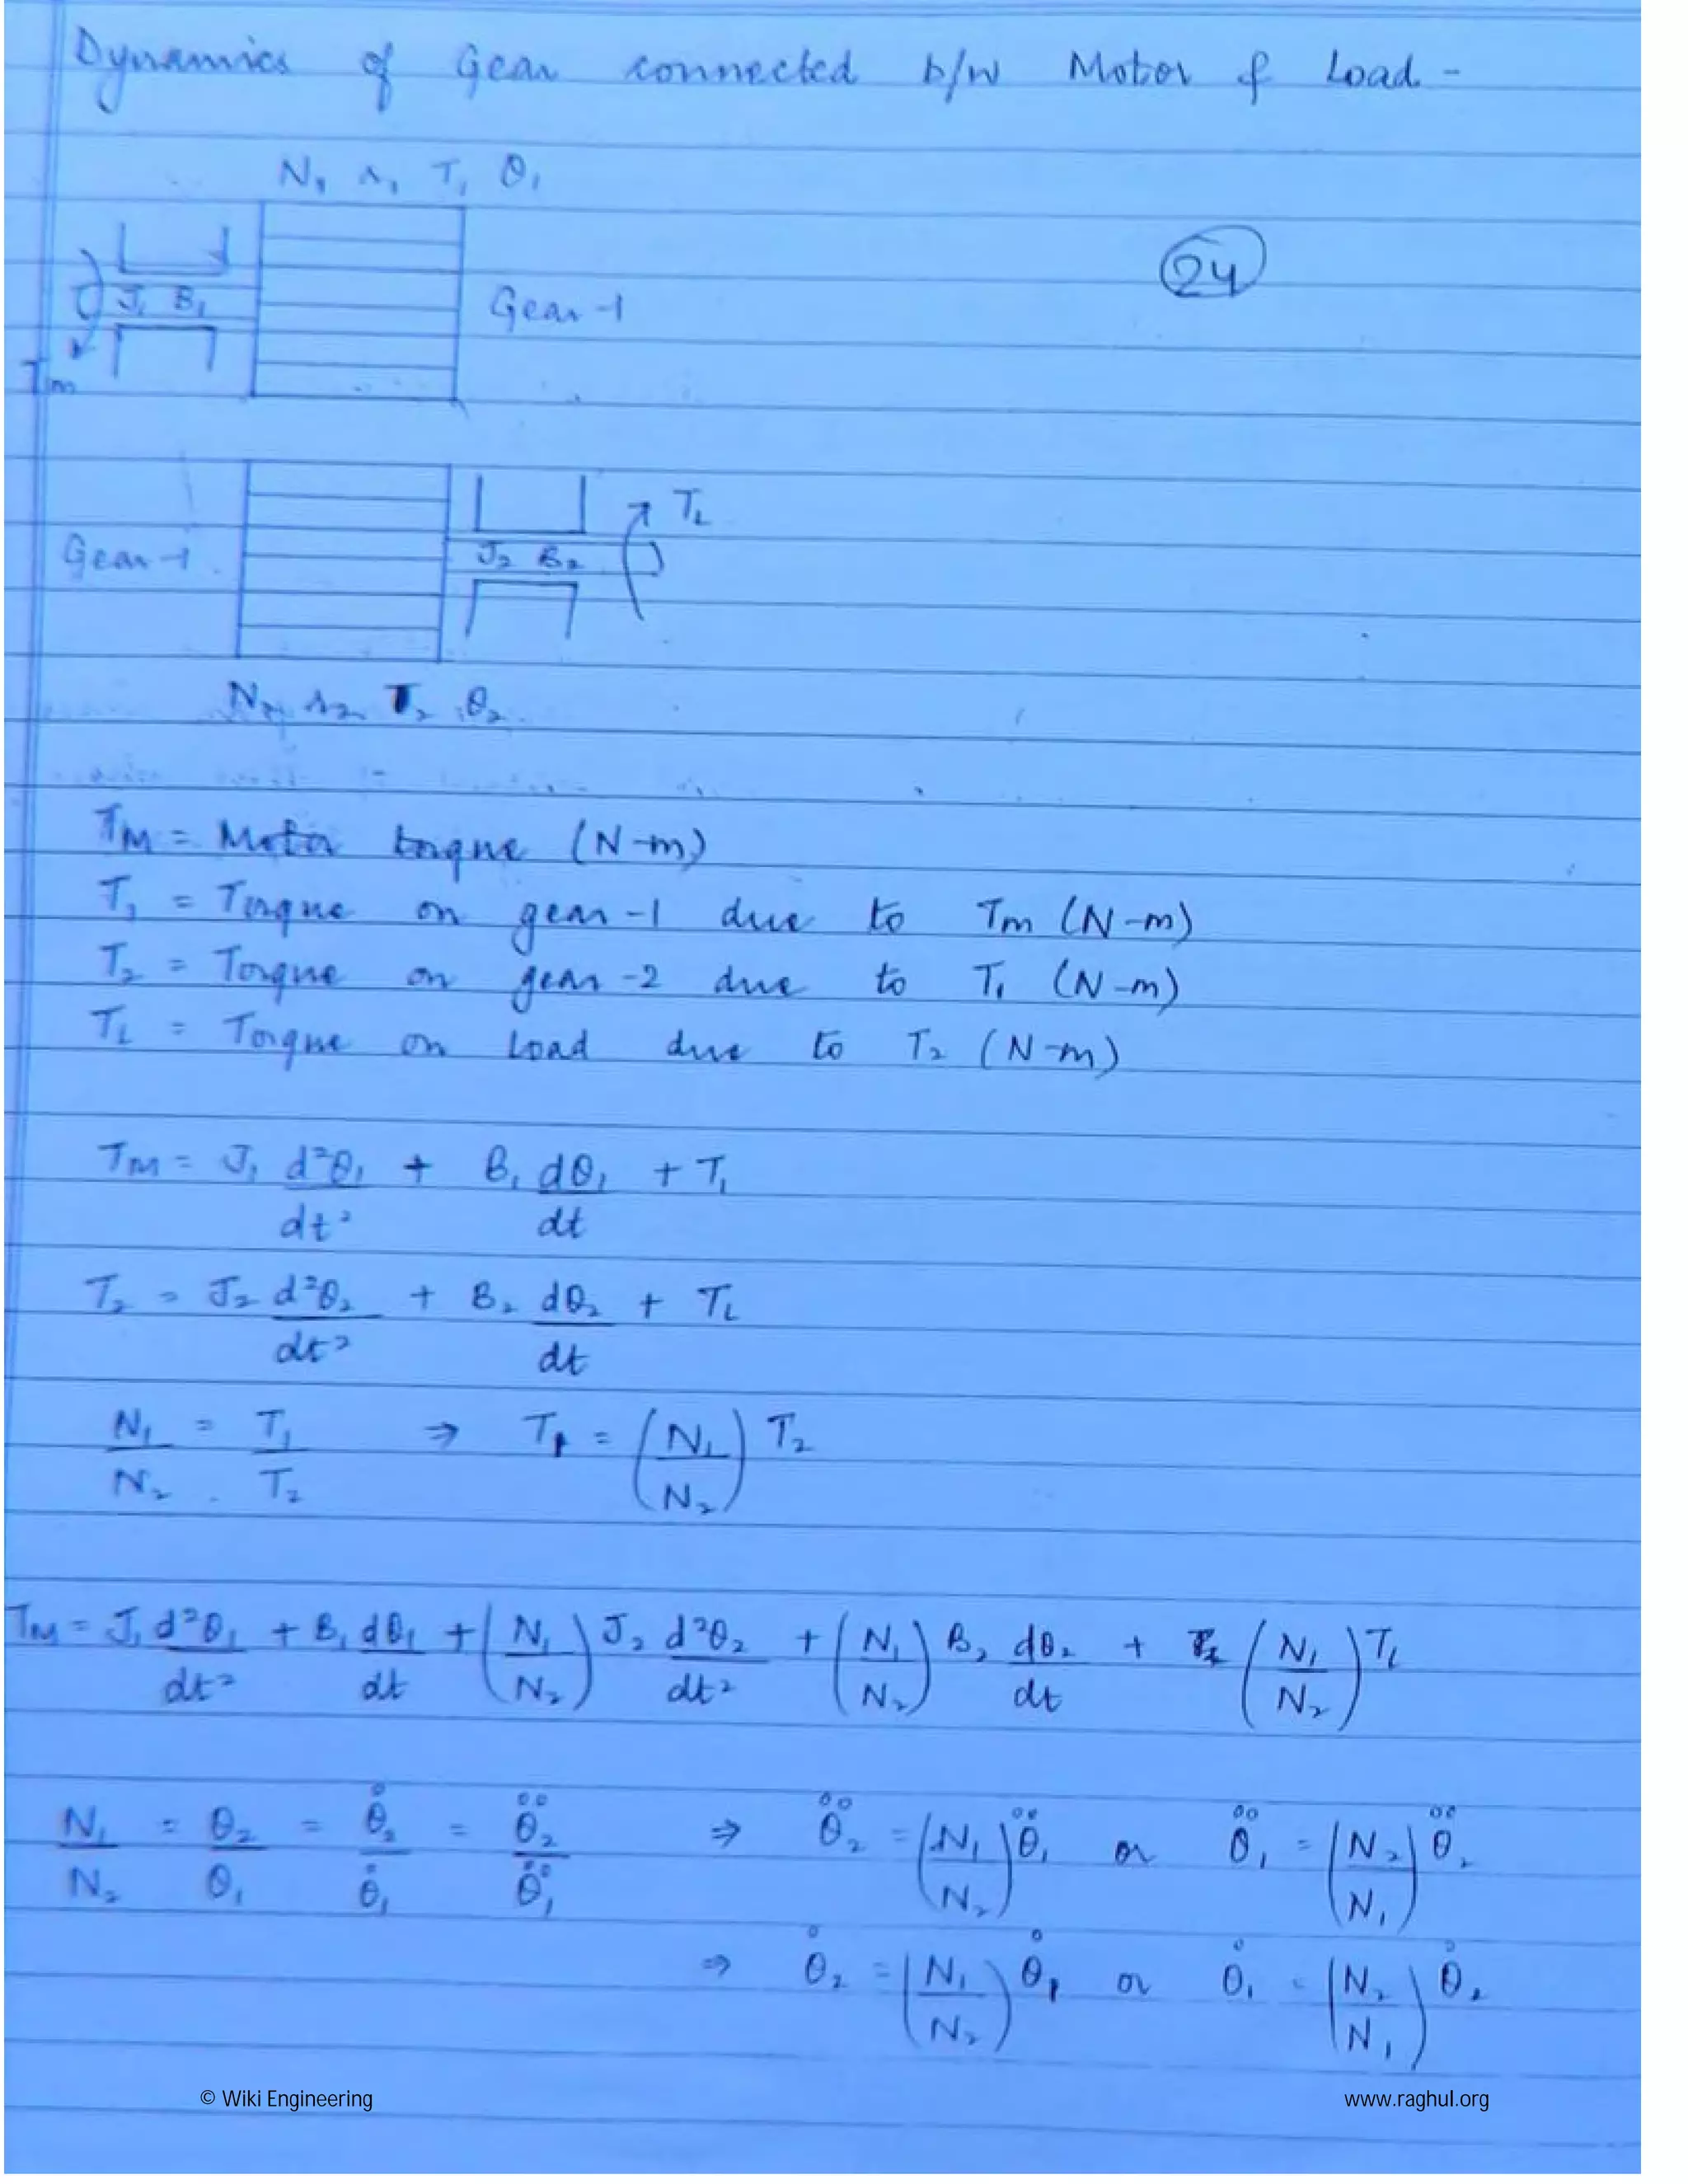 Dynamics of Gear connected b/w Motor & Load -
N1 r1 T1 θ1
24
J1 B1
Gear-1
Tm
TL
Gear-1
J2 B2
N2 r2 T2 θ2
TM = Motor torque (N-m)
T1 = Torque on gear-1 due to Tm (N-m)
T2 = Torque on gear-2 due to T1 (N-m)
TL = Torque on Load due to T2 (N-m)
TM = J1 d²θ1/dt² + B1 dθ1/dt + T1
T2 = J2 d²θ2/dt² + B2 dθ2/dt + TL
N1/N2 = T1/T2 ⇒ T1 = (N1/N2) T2
TM = J1 d²θ1/dt² + B1 dθ1/dt + (N1/N2) J2 d²θ2/dt² + (N1/N2) B2 dθ2/dt + (N1/N2) TL
N1/N2 = θ2/θ1 = θ̇2/θ̇1 = θ̈2/θ̈1 ⇒ θ̈2 = (N1/N2) θ̈1 or θ̈1 = (N2/N1) θ̈2
⇒ θ̇2 = (N1/N2) θ̇1 or θ̇1 = (N2/N1) θ̇2
© Wiki Engineering www.raghul.org